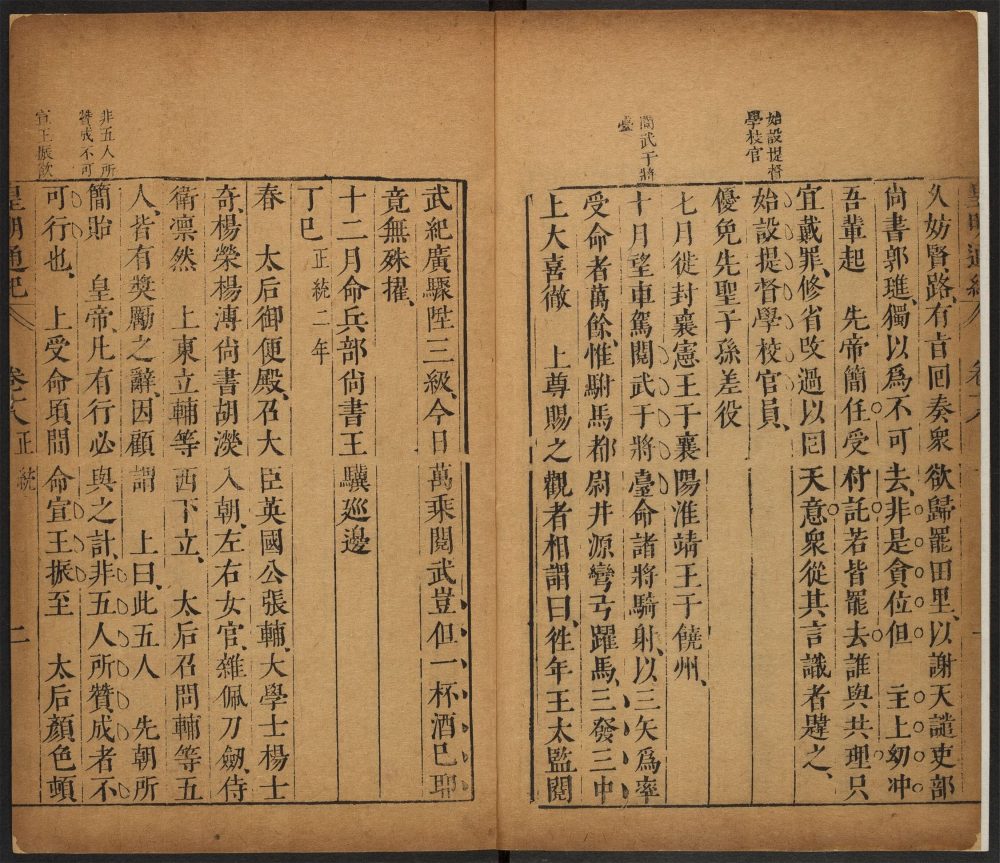 始設提督
學校官
閱武于將
臺
久妨賢路有言回奏衆欲歸罷田里以謝天譴吏部
尚書郭璡獨以爲不可去非是貪位但　主上幼冲
吾輩起　先帝簡任受付託若皆罷去誰與共理只
宜戴罪修省改過以回天意衆從其言識者韙之
始設提督學校官員
優免先聖子孫差役
七月徙封襄憲王于襄陽淮靖王于饒州
十月望車駕閱武于將臺命諸將騎射以三矢爲率
受命者萬餘惟駙馬都尉井源彎弓躍馬三發三中
上大喜徹　上尊賜之觀者相謂曰徃年王太監閱
非五人所
贊成不可
宣王振欲
武紀廣驟陞三級今日萬乘閱武豈但一杯酒已耶
竟無殊擢
十二月命兵部尚書王驥廵邊
丁巳正統二年
春　太后御便殿召大臣英國公張輔大學士楊士
奇楊榮楊溥尚書胡濙入朝左右女官雜佩刀劒侍
衛凛然　上東立輔等西下立　太后召問輔等五
人皆有奬勵之辭因顧謂　上曰此五人　先朝所
簡貽　皇帝凡有行必與之計非五人所贊成者不
可行也　上受命頃間命宣王振至　太后顏色頓
皇明通紀　卷八　正統　二